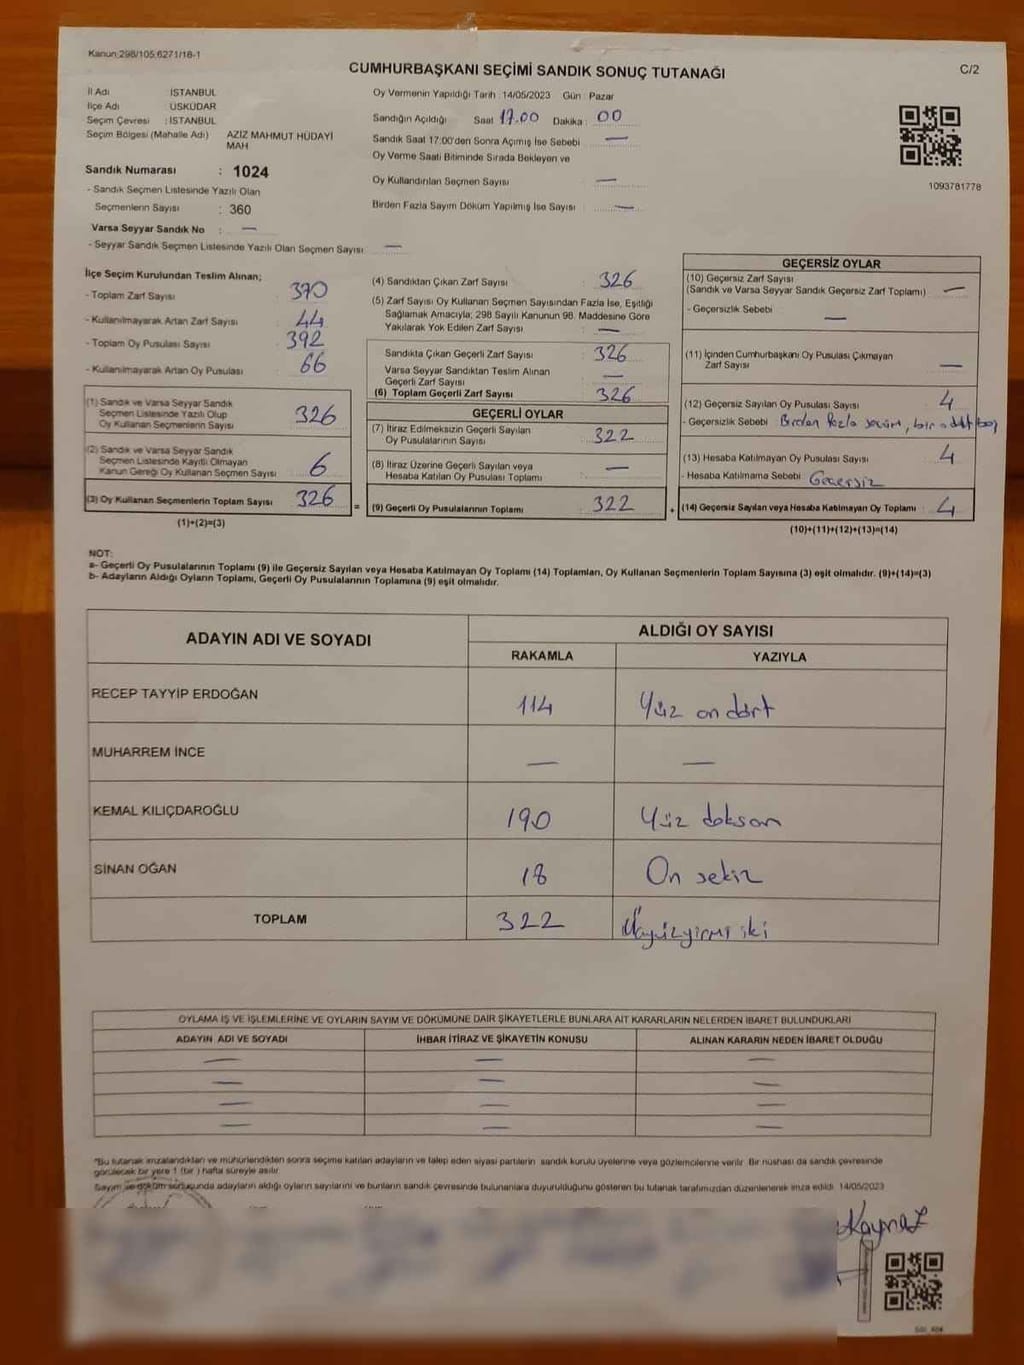 Kanun:298/105;6271/18-1
CUMHURBAŞKANI SEÇİMİ SANDIK SONUÇ TUTANAĞI
C/2
İl Adı İSTANBUL
İlçe Adı ÜSKÜDAR
Seçim Çevresi : İSTANBUL
Seçim Bölgesi (Mahalle Adı) AZİZ MAHMUT HÜDAYİ MAH
Sandık Numarası : 1024
- Sandık Seçmen Listesinde Yazılı Olan
Seçmenlerin Sayısı : 360
Varsa Seyyar Sandık No : —
- Seyyar Sandık Seçmen Listesinde Yazılı Olan Seçmen Sayısı —
Oy Vermenin Yapıldığı Tarih : 14/05/2023 Gün : Pazar
Sandığın Açıldığı Saat 17.00 Dakika : 00
Sandık Saat 17:00'den Sonra Açımış İse Sebebi —
Oy Verme Saati Bitiminde Sırada Bekleyen ve
Oy Kullandırılan Seçmen Sayısı —
Birden Fazla Sayım Döküm Yapılmış İse Sayısı —
1093781778
İlçe Seçim Kurulundan Teslim Alınan;
- Toplam Zarf Sayısı 370
- Kullanılmayarak Artan Zarf Sayısı 44
- Toplam Oy Pusulası Sayısı 392
- Kullanılmayarak Artan Oy Pusulası 66
(1) Sandık ve Varsa Seyyar Sandık
Seçmen Listesinde Yazılı Olup
Oy Kullanan Seçmenlerin Sayısı 326
(2) Sandık ve Varsa Seyyar Sandık
Seçmen Listesinde Kayıtlı Olmayan
Kanun Gereği Oy Kullanan Seçmen Sayısı 6
(3) Oy Kullanan Seçmenlerin Toplam Sayısı 326 =
(1)+(2)=(3)
(4) Sandıktan Çıkan Zarf Sayısı 326
(5) Zarf Sayısı Oy Kullanan Seçmen Sayısından Fazla İse, Eşitliği
Sağlamak Amacıyla; 298 Sayılı Kanunun 98. Maddesine Göre
Yakılarak Yok Edilen Zarf Sayısı —
Sandıkta Çıkan Geçerli Zarf Sayısı : 326
Varsa Seyyar Sandıktan Teslim Alınan
Geçerli Zarf Sayısı —
(6) Toplam Geçerli Zarf Sayısı 326
GEÇERLİ OYLAR
(7) İtiraz Edilmeksizin Geçerli Sayılan
Oy Pusulalarının Sayısı 322
(8) İtiraz Üzerine Geçerli Sayılan veya
Hesaba Katılan Oy Pusulası Toplamı —
(9) Geçerli Oy Pusulalarının Toplamı 322 +
GEÇERSİZ OYLAR
(10) Geçersiz Zarf Sayısı
(Sandık ve Varsa Seyyar Sandık Geçersiz Zarf Toplamı) —
- Geçersizlik Sebebi —
(11) İçinden Cumhurbaşkanı Oy Pusulası Çıkmayan
Zarf Sayısı —
(12) Geçersiz Sayılan Oy Pusulası Sayısı 4
- Geçersizlik Sebebi Birden fazla seçim, bir adet boş
(13) Hesaba Katılmayan Oy Pusulası Sayısı 4
- Hesaba Katılmama Sebebi Geçersiz
(14) Geçersiz Sayılan veya Hesaba Katılmayan Oy Toplamı : 4
(10)+(11)+(12)+(13)=(14)
NOT:
a- Geçerli Oy Pusulalarının Toplamı (9) ile Geçersiz Sayılan veya Hesaba Katılmayan Oy Toplamı (14) Toplamları, Oy Kullanan Seçmenlerin Toplam Sayısına (3) eşit olmalıdır. (9)+(14)=(3)
b- Adayların Aldığı Oyların Toplamı, Geçerli Oy Pusulalarının Toplamına (9) eşit olmalıdır.
ADAYIN ADI VE SOYADI ALDIĞI OY SAYISI
RAKAMLA YAZIYLA
RECEP TAYYİP ERDOĞAN 114 Yüz on dört
MUHARREM İNCE — —
KEMAL KILIÇDAROĞLU 190 Yüz doksan
SİNAN OĞAN 18 On sekiz
TOPLAM 322 Üçyüzyirmi iki
OYLAMA İŞ VE İŞLEMLERİNE VE OYLARIN SAYIM VE DÖKÜMÜNE DAİR ŞİKAYETLERLE BUNLARA AİT KARARLARIN NELERDEN İBARET BULUNDUKLARI
ADAYIN ADI VE SOYADI İHBAR İTİRAZ VE ŞİKAYETİN KONUSU ALINAN KARARIN NEDEN İBARET OLDUĞU
— — —
— — —
— — —
— — —
*Bu tutanak imzalandıktan ve mühürlendikten sonra seçime katılan adayların ve talep eden siyasi partilerin sandık kurulu üyelerine veya gözlemcilerine verilir. Bir nüshası da sandık çevresinde
görülecek bir yere 1 (bir ) hafta süreyle asılır.
Sayım ve döküm sonucunda adayların aldığı oyların sayılarını ve bunların sandık çevresinde bulunanlara duyurulduğunu gösteren bu tutanak tarafımızdan düzenlenerek imza edildi. 14/05/2023